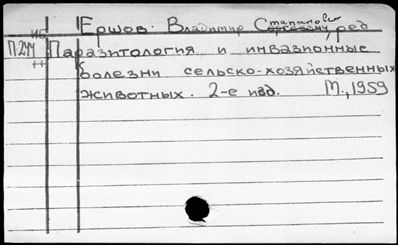 ис Ершов. Владимир Степанович, ред
П 244 Паразитология и инвазионные
++ болезни сельско-хозяйственных
животных. 2-е изд. М., 1959